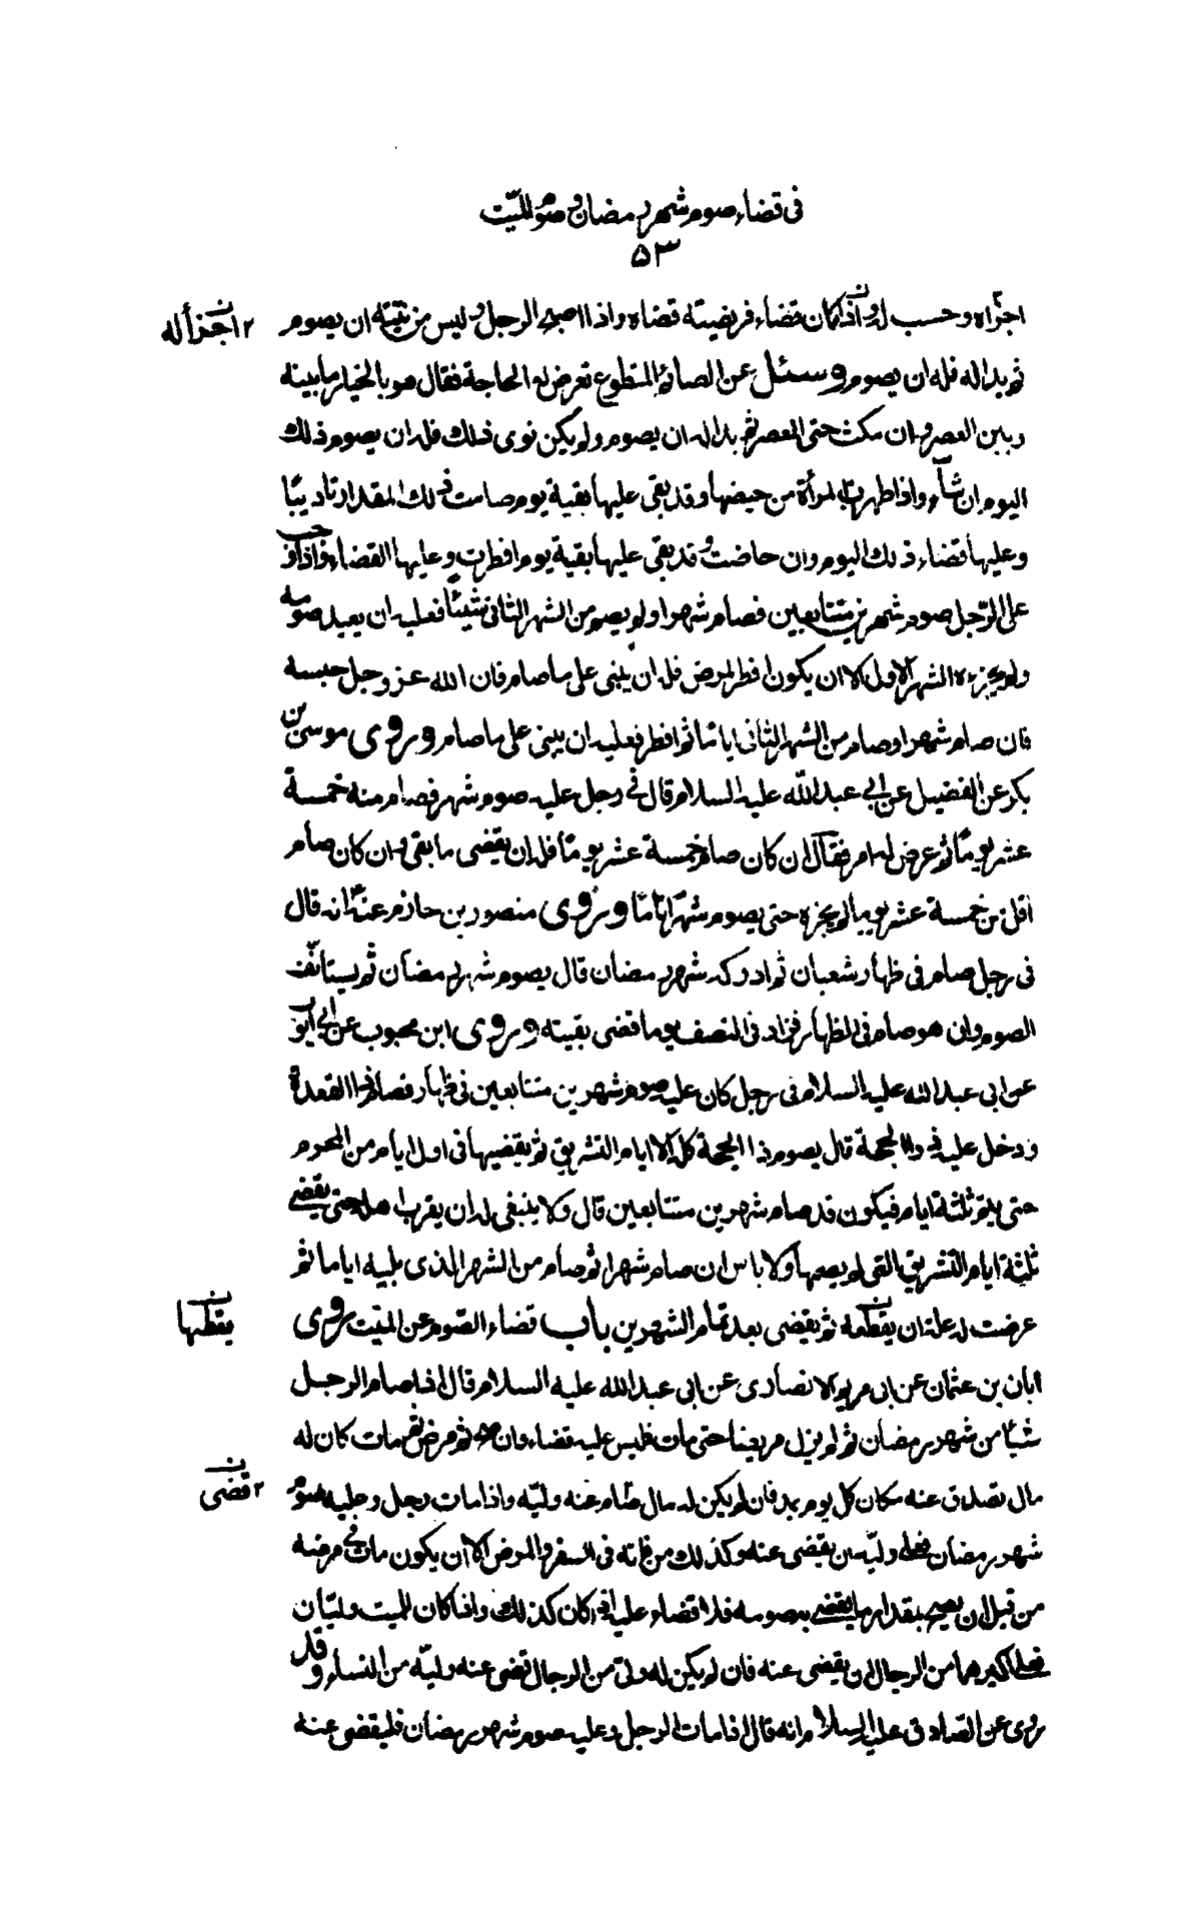 فى قضاء صوم شهر رمضان و صوم الميّت
۵۳
اجزاه وحسب له وان كان قضاء فريضيته قضاه واذا اصبح الرجل وليس من نيته ان يصوم
٢ اجزأ له
ثم بدا له فله ان يصوم وسئل عن الصائم المتطوع تعرض له الحاجة فقال هو بالخيار ما بينه
وبين العصر وان مكث حتى العصر ثم بدا له ان يصوم ولم يكن نوى ذلك فله ان يصوم ذلك
اليوم ان شاء واذا طهرت المرأة من حيضها وقد بقى عليها بقية يوم صامت ذلك المقدار تاديبًا
وعليها قضاء ذلك اليوم وان حاضت وقد بقى عليها بقية يوم افطرت وعليها القضاء واذا وجب
على الرّجل صوم شهرين متتابعين فصام شهرا ولم يصم من الشهر الثانى شيئًا فعليه ان يعيد صومه
ولم يجزءه الشهر الاول الا ان يكون افطر لمرض فله ان يبنى على ما صام فان الله عز وجل حبسه
فان صام شهرا وصام من الشهر الثانى اياما ثم افطر فعليه ان يبنى على ما صام وروى موسى بن
بكر عن الفضيل عن ابي عبد اللّه عليه السلام قال فى رجل عليه صوم شهر فصام منه خمسة
عشر يومًا ثم عرض له امر فقال ان كان صام خمسة عشر يومًا فله ان يقضى ما بقى وان كان صام
اقل من خمسة عشر يوما لم يجزه حتى يصوم شهرًا تامًا وروى منصور بن حازم عنه انه قال
فى رجل صام فى ظهار شعبان ثم ادركه شهر رمضان قال يصوم شهر رمضان ثم يستانف
الصوم وان هو صام فى الظهار فزاد فى النصف يوما قضى بقيته وروى ابن محبوب عن ابي ايوب
عن ابى عبد الله عليه السلام فى رجل كان عليه صوم شهرين متتابعين فى ظهار فصام ذا القعدة
ودخل عليه ذو الحجة قال يصوم ذا الحجة كله الا ايام التشريق ثم يقضيها فى اول ايام من المحرم
حتى يتم ثلثة ايام فيكون قد صام شهرين متتابعين قال ولا ينبغى له ان يقرب اهله حتى يقضي
ثلثة ايام التشريق التى لم يصمها ولا باس ان صام شهرا ثم صام من الشهر الذى يليه اياما ثم
عرضت له علة ان يقطعه ثم يقضى بعد تمام الشهرين باب قضاء الصّوم عن الميّت روى
يقطعها
ابان بن عثمان عن ابى مريم الانصارى عن ابى عبد الله عليه السلام قال اذا صام الرجل
شيئا من شهر رمضان ثم لم يزل مريضا حتى مات فليس عليه قضاء وان صح ثم مرض ثم مات كان له
مال تصدق عنه مكان كل يوم بمد فان لم يكن له مال صام عنه وليّه واذا مات رجل وعليه صوم
٢ قضى
شهر رمضان فعلى وليّه ان يقضى عنه وكذلك من فاته فى السفر والمرض الا ان يكون مات في مرضه
من قبل ان يصح بمقدار ما يقضي به صومه فلا قضاء عليه اذا كان كذلك واذا كان للميت وليّان
فعلى اكبرهما من الرجال ان يقضى عنه فان لم يكن له ولىّ من الرجال قضى عنه وليّه من النساء وقد
روى عن الصادق عليه السلام انه قال اذا مات الرجل وعليه صوم شهر رمضان فليقضى عنه